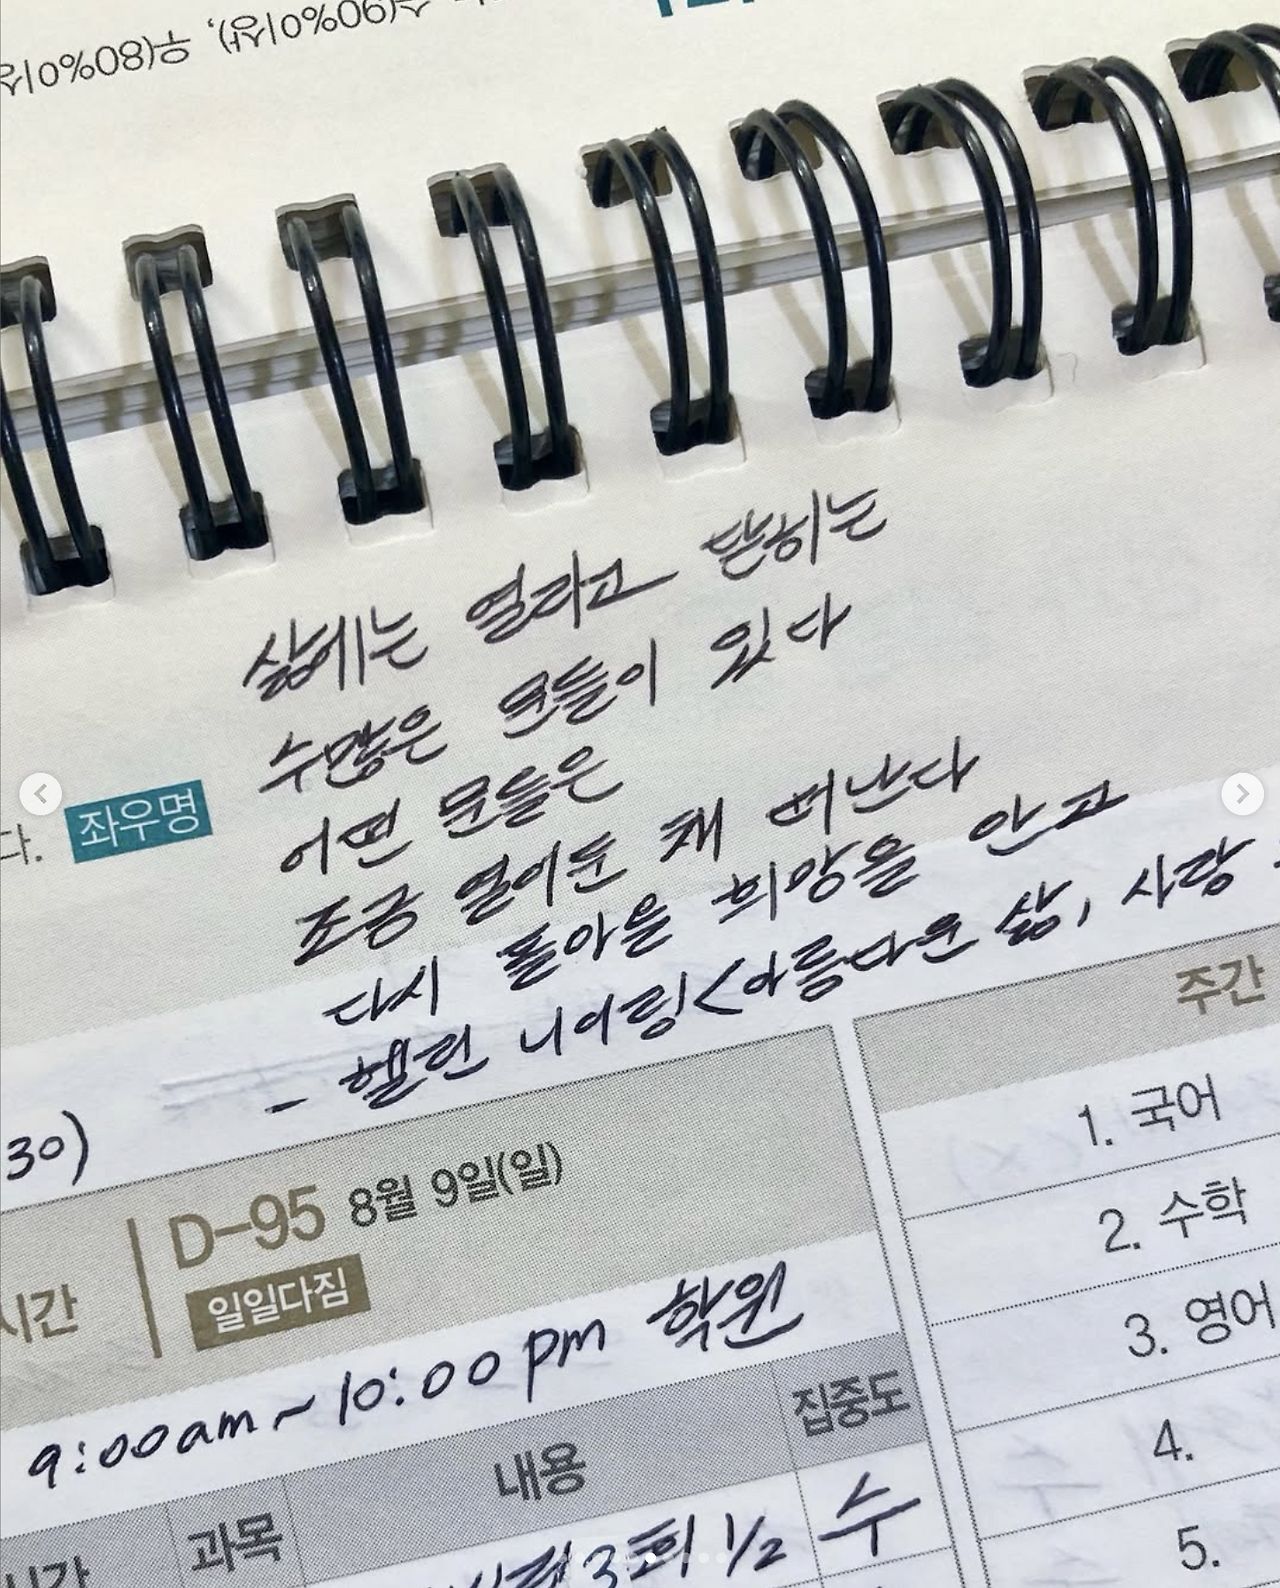 수(90%이상), 우(80%이상
삶에는 열리고 닫히는
수많은 문들이 있다
어떤 문들은
조금 열어둔 채 떠난다
다시 돌아올 희망을 안고
- 헬렌 니어링<아름다운 삶, 사랑
다. 좌우명
30)
주간
D-95 8월 9일(일)
시간
일일다짐
9:00am~10:00pm 학원
1. 국어
2. 수학
3. 영어
4.
5.
시간 과목 내용 집중도
3회 1/2 수